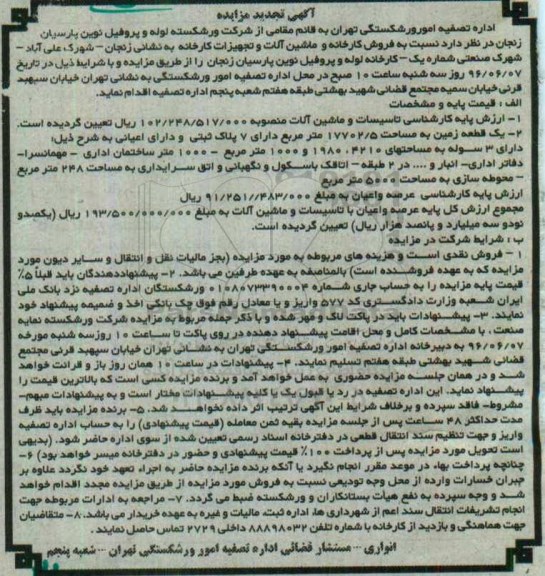 آگهی تجدید مزایده
اداره تصفیه امورورشکستگی تهران به قائم مقامی از شرکت ورشکسته لوله و پروفیل نوین پارسیان
زنجان در نظر دارد نسبت به فروش کارخانه و ماشین آلات و تجهیزات کارخانه به نشانی زنجان - شهرک علی آباد -
شهرک صنعتی شماره یک - کارخانه لوله و پروفیل نوین پارسیان زنجان را از طریق مزایده و با شرایط ذیل در تاریخ
۹۶/۰۶/۰۷ روز سه شنبه ساعت ۱۰ صبح در محل اداره تصفیه امور ورشکستگی به نشانی تهران خیابان سپهبد
قرنی خیابان سمیه مجتمع قضائی شهید بهشتی طبقه هفتم شعبه پنجم اداره تصفیه اقدام نماید.
الف : قیمت پایه و مشخصات
۱- ارزش پایه کارشناسی تاسیسات و ماشین آلات منصوبه ۱۰۲/۲۴۸/۵۱۷/۰۰۰ ریال تعیین گردیده است.
۲- یک قطعه زمین به مساحت ۱۷۷۰۲/۵ متر مربع دارای ۷ پلاک ثبتی و دارای اعیانی به شرح ذیل:
دارای ۳ سوله به مساحتهای ۴۲۱۰، ۱۹۸۰ و ۱۰۰۰ متر مربع - ۱۰۰۰ متر ساختمان اداری - مهمانسرا-
دفاتر اداری- انبار و .... در ۲ طبقه - اتاقک باسکول و نگهبانی و اتق سرایداری به مساحت ۲۴۸ متر مربع
- محوطه سازی به مساحت ۵۰۰۱ متر مربع
ارزش پایه کارشناسی عرصه واعیان به مبلغ ۹۱/۲۵۱//۴۸۳/۰۰۰ ریال
مجموع ارزش کل پایه عرصه واعیان با تاسیسات و ماشین آلات به مبلغ ۱۹۳/۵۰۰/۰۰۰/۰۰۰ ریال (یکصدو
نودو سه میلیارد و پانصد هزار ریال) تعیین گردیده است.
ب : شرایط شرکت در مزایده
۱ - فروش نقدی است و هزینه های مربوطه به مورد مزایده (بجز مالیات نقل و انتقال و سایر دیون مورد
مزایده که به عهده فروشنده است) بالمناصفه به عهده طرفین می باشد. ۲- پیشنهاددهندگان باید قبلاً ۵٪
قیمت پایه مزایده را به حساب جاری شماره ۰۱۰۸۸۷۳۳۹۰۰۰۴ ورشکستگان اداره تصفیه نزد بانک ملی
ایران شعبه وزارت دادگستری کد ۵۷۷ واریز و یا معادل رقم فوق چک بانکی اخذ و ضمیمه پیشنهاد خود
نمایند. ۳- پیشنهادات باید در پاکت لاک و مهر شده و با ذکر جمله مربوط به مزایده شرکت ورشکسته نمایه
صنعت، با مشخصات کامل و محل اقامت پیشنهاد دهنده در روی پاکت تا ساعت ۱۰ روزسه شنبه مورخه
۹۶/۰۶/۰۷ به دبیرخانه اداره تصفیه امور ورشکستگی تهران به نشانی تهران خیابان سپهبد قرنی مجتمع
قضائی شهید بهشتی طبقه هفتم تسلیم نمایند. ۴- پیشنهادات در ساعت ۱۰ همان روز باز و قرائت خواهد
شد و در همان جلسه مزایده حضوری به عمل خواهد آمد و برنده مزایده کسی است که بالاترین قیمت را
پیشنهاد نماید. این اداره تصفیه در رد یا قبول یک یا کلیه پیشنهادات مختار است و به پیشنهادات مبهم-
مشروط- فاقد سپرده و برخلاف شرایط این آگهی ترتیب اثر داده نخواهد شد. ۵- برنده مزایده باید ظرف
مدت حداکثر ۴۸ ساعت پس از جلسه مزایده بقیه ثمن معامله (قیمت پیشنهادی) را به حساب اداره تصفیه
واریز و جهت تنظیم سند انتقال قطعی در دفترخانه اسناد رسمی تعیین شده از سوی اداره حاضر شود. (بدیهی
است تحویل مورد مزایده پس از پرداخت ۱۰۰٪ قیمت پیشنهادی و حضور در دفترخانه میسر خواهد بود) ۶-
چنانچه پرداخت بهاء در موعد مقرر انجام نگیرد یا آنکه برنده مزایده حاضر به اجراء تعهد خود نگردد علاوه بر
جبران خسارات وارده از محل وجه تودیعی نسبت به فروش مورد مزایده از طریق مزایده مجدد اقدام خواهد
شد و وجه سپرده به نفع هیأت بستانکاران و ورشکسته ضبط می گردد. ۷- مراجعه به ادارات مربوطه جهت
انجام تشریفات انتقال سند اعم از شهرداری ها، اداره ثبت، مالیات و غیره به عهده خریدار می باشد. ۸- متقاضیان
جهت هماهنگی و بازدید از کارخانه با شماره تلفن ۸۸۸۹۸۰۳۲ داخلی ۲۷۲۹ تماس حاصل نمایند.
انواری - مستشار قضائی اداره تصفیه امور ورشکستگی تهران - شعبه پنجم